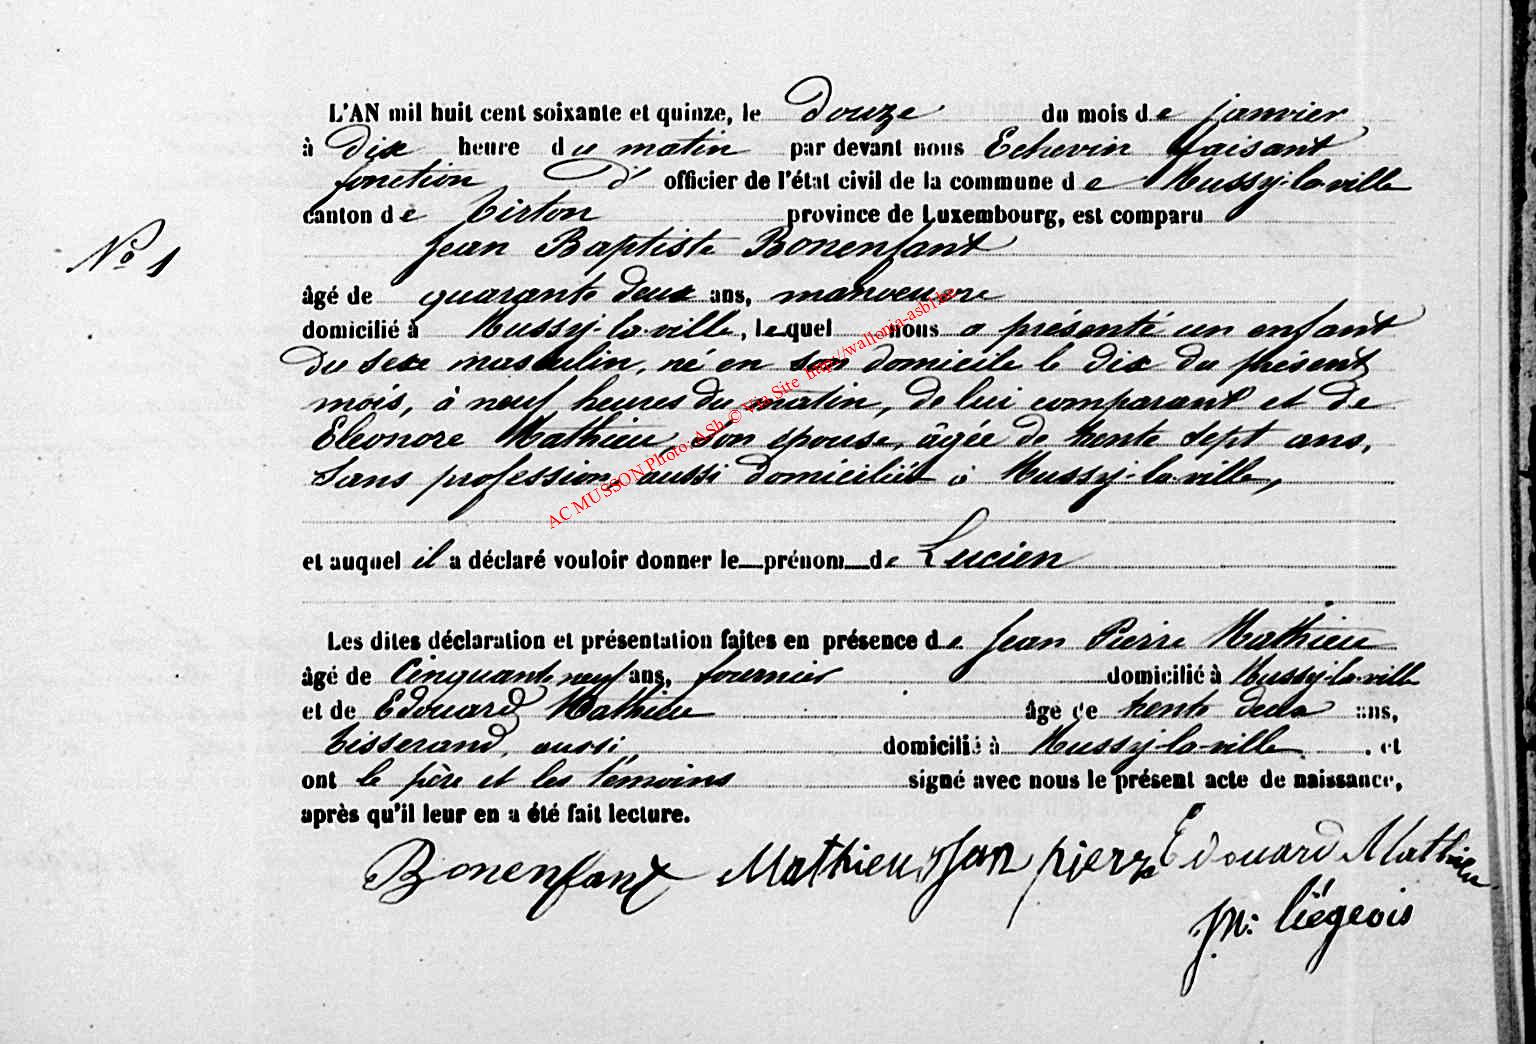 L'AN mil huit cent soixante et quinze, le douze du mois de janvier
à dix heure du matin par devant nous Echevin faisant
fonction d' officier de l'état civil de la commune de Mussy-la-ville
canton de Virton province de Luxembourg, est comparu
Jean Baptiste Bonenfant
N° 1
âgé de quarante deux ans, manoeuvre
domicilié à Mussy-la-ville, lequel nous a présenté un enfant
du sexe masculin, né en son domicile le dix du présent
mois, à neuf heures du matin, de lui comparant et de
Eléonore Mathieu, son épouse, âgée de trente sept ans,
sans profession, aussi domiciliée à Mussy-la-ville,
AC MUSSON Photo: ASb © Via Site http://wallonia-asbl.be
et auquel il a déclaré vouloir donner le prénom de Lucien
Les dites déclaration et présentation faites en présence de Jean Pierre Mathieu
âgé de Cinquante neuf ans, fournier domicilié à Mussy-la-ville
et de Edouard Mathieu âgé de trente deux ans,
tisserand, aussi, domicilié à Mussy-la-ville, et
ont le père et les témoins signé avec nous le présent acte de naissance,
après qu'il leur en a été fait lecture.
Bonenfant Mathieu Jean pierre Edouard Mathieu
Liégeois